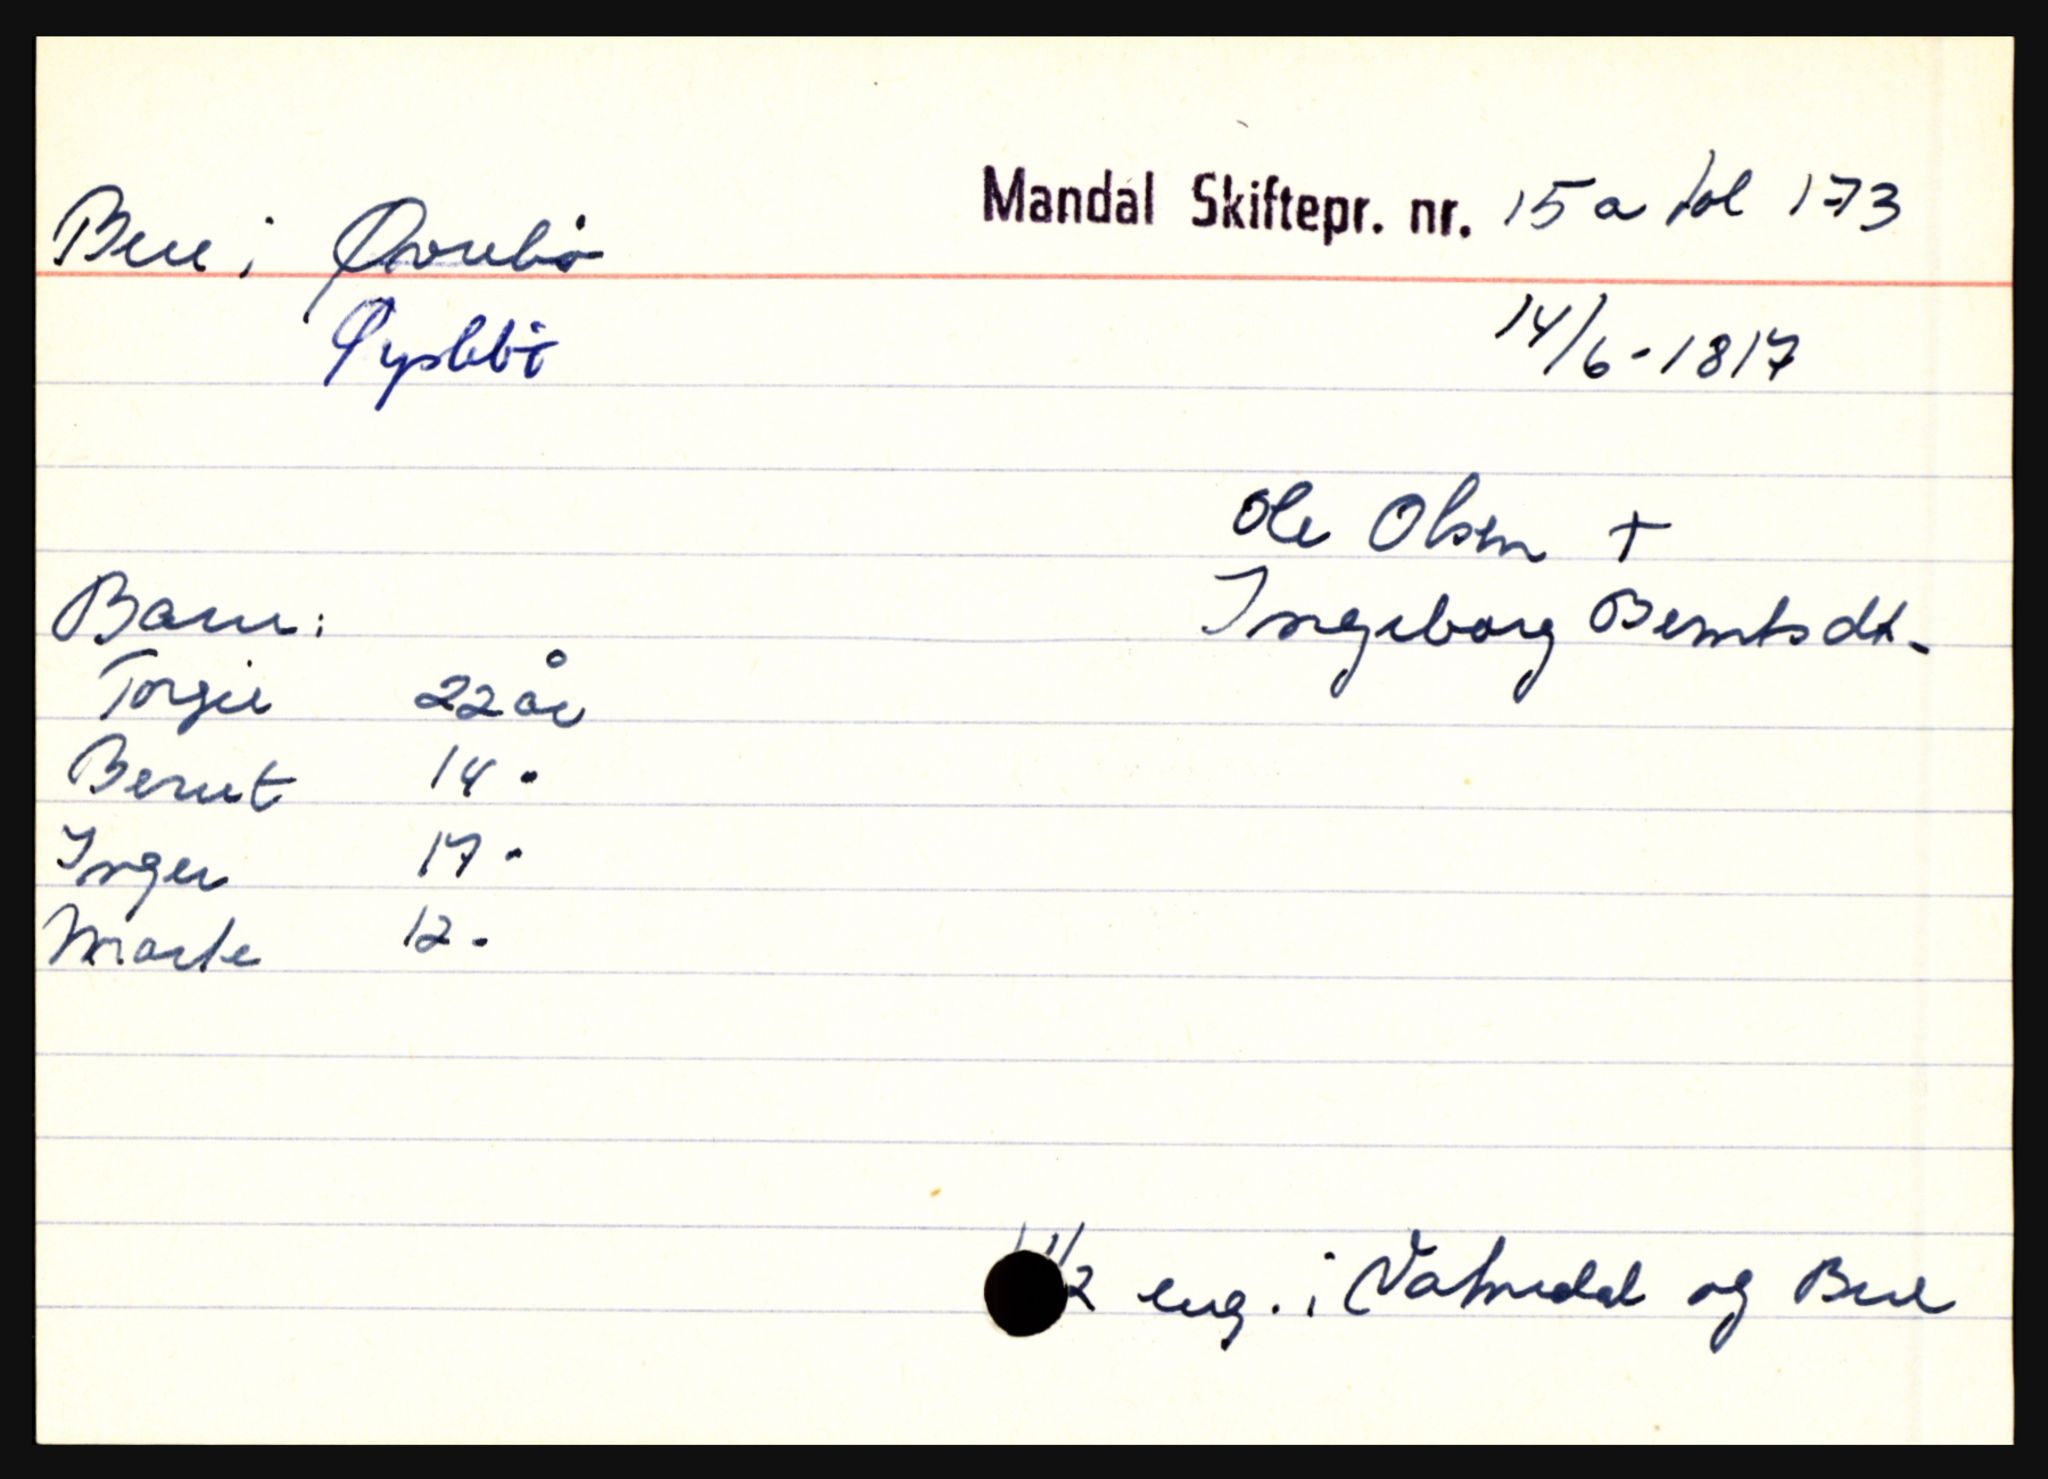 Mandal Skiftepr. nr. 15a fol 173
Bue i Øvrebø
Øyslebø
14/6-1817
Ole Olsen +
Ingeborg Berntsdt.
Barn:
Torgie 22 år
Bernt 14 -
Inger 17 -
Marte 12 -
1 1/2 eng. i Vatnedal og Bue